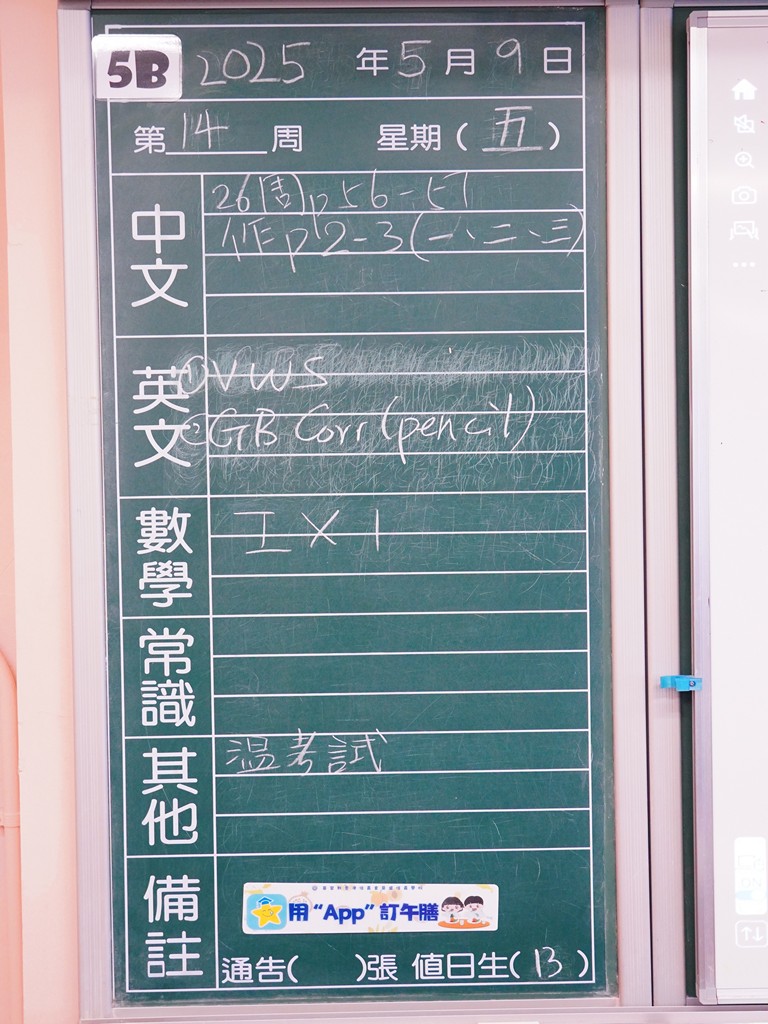 5B 2025 年 5 月 9 日
第 14 周 星期 ( 五 )
中文
26周p56-57
作p2-3(一、二、三)
英文
①VWS
②GB Corr (pencil)
數學
工 X 1
常識
其他
溫考試
備註
用“App”訂午膳
通告( )張 值日生( 13 )